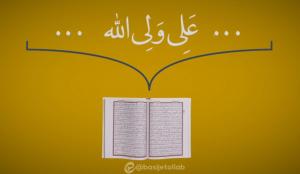 ... عَلِی وَلِی الله ...
@basijetollab